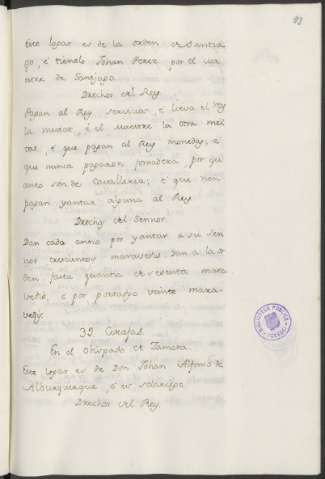 93
Este logar es de la orden de Santia
go, e tienelo Johan Perez por el ma
estre de Santiago
Drechos del Rey
Pagan al Rey servicios, e lieva el Rey
la meitat, e el maestre la otra mei
tat, e que pagan al Rey monedas, e
que nunca pagaron fonsadera por qu
anto son de cavalleria; e que non
pagan yantar alguno al Rey
Drechos del Sennor
Dan cada anno por yantar a su sen
nor trescientos maravedis dan a la or
den fasta quantia de sesenta mara
vedis, e por portadgo veinte mara
vedis.
32. Corajas
En el obispado de Zamora
Este logar es de Don Johan Alfonso de
Alburquerque, e es solariego
Drechos del Rey.